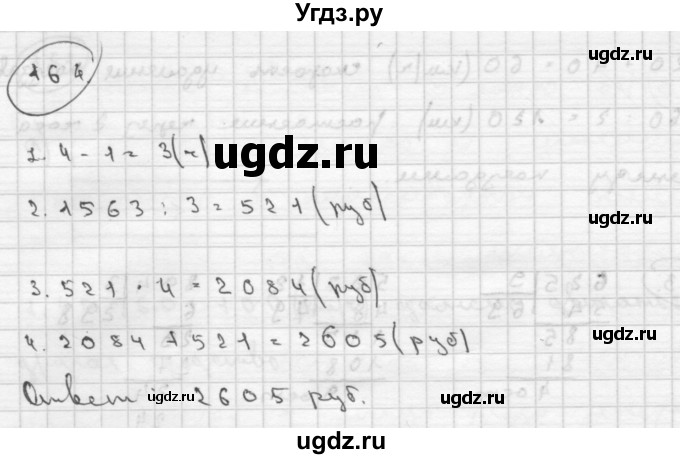 Угдз.ру
ugdz.ru
164
1. 4 - 1 = 3(ч)
ugdz.ru
2. 1563 : 3 = 521 (руб)
ugdz.ru
3. 521 · 4 = 2084 (руб)
ugdz.ru
4. 2084 + 521 = 2605 (руб)
Ответ: 2605 руб.
ugdz.ru
ugdz.ru
ugdz.ru